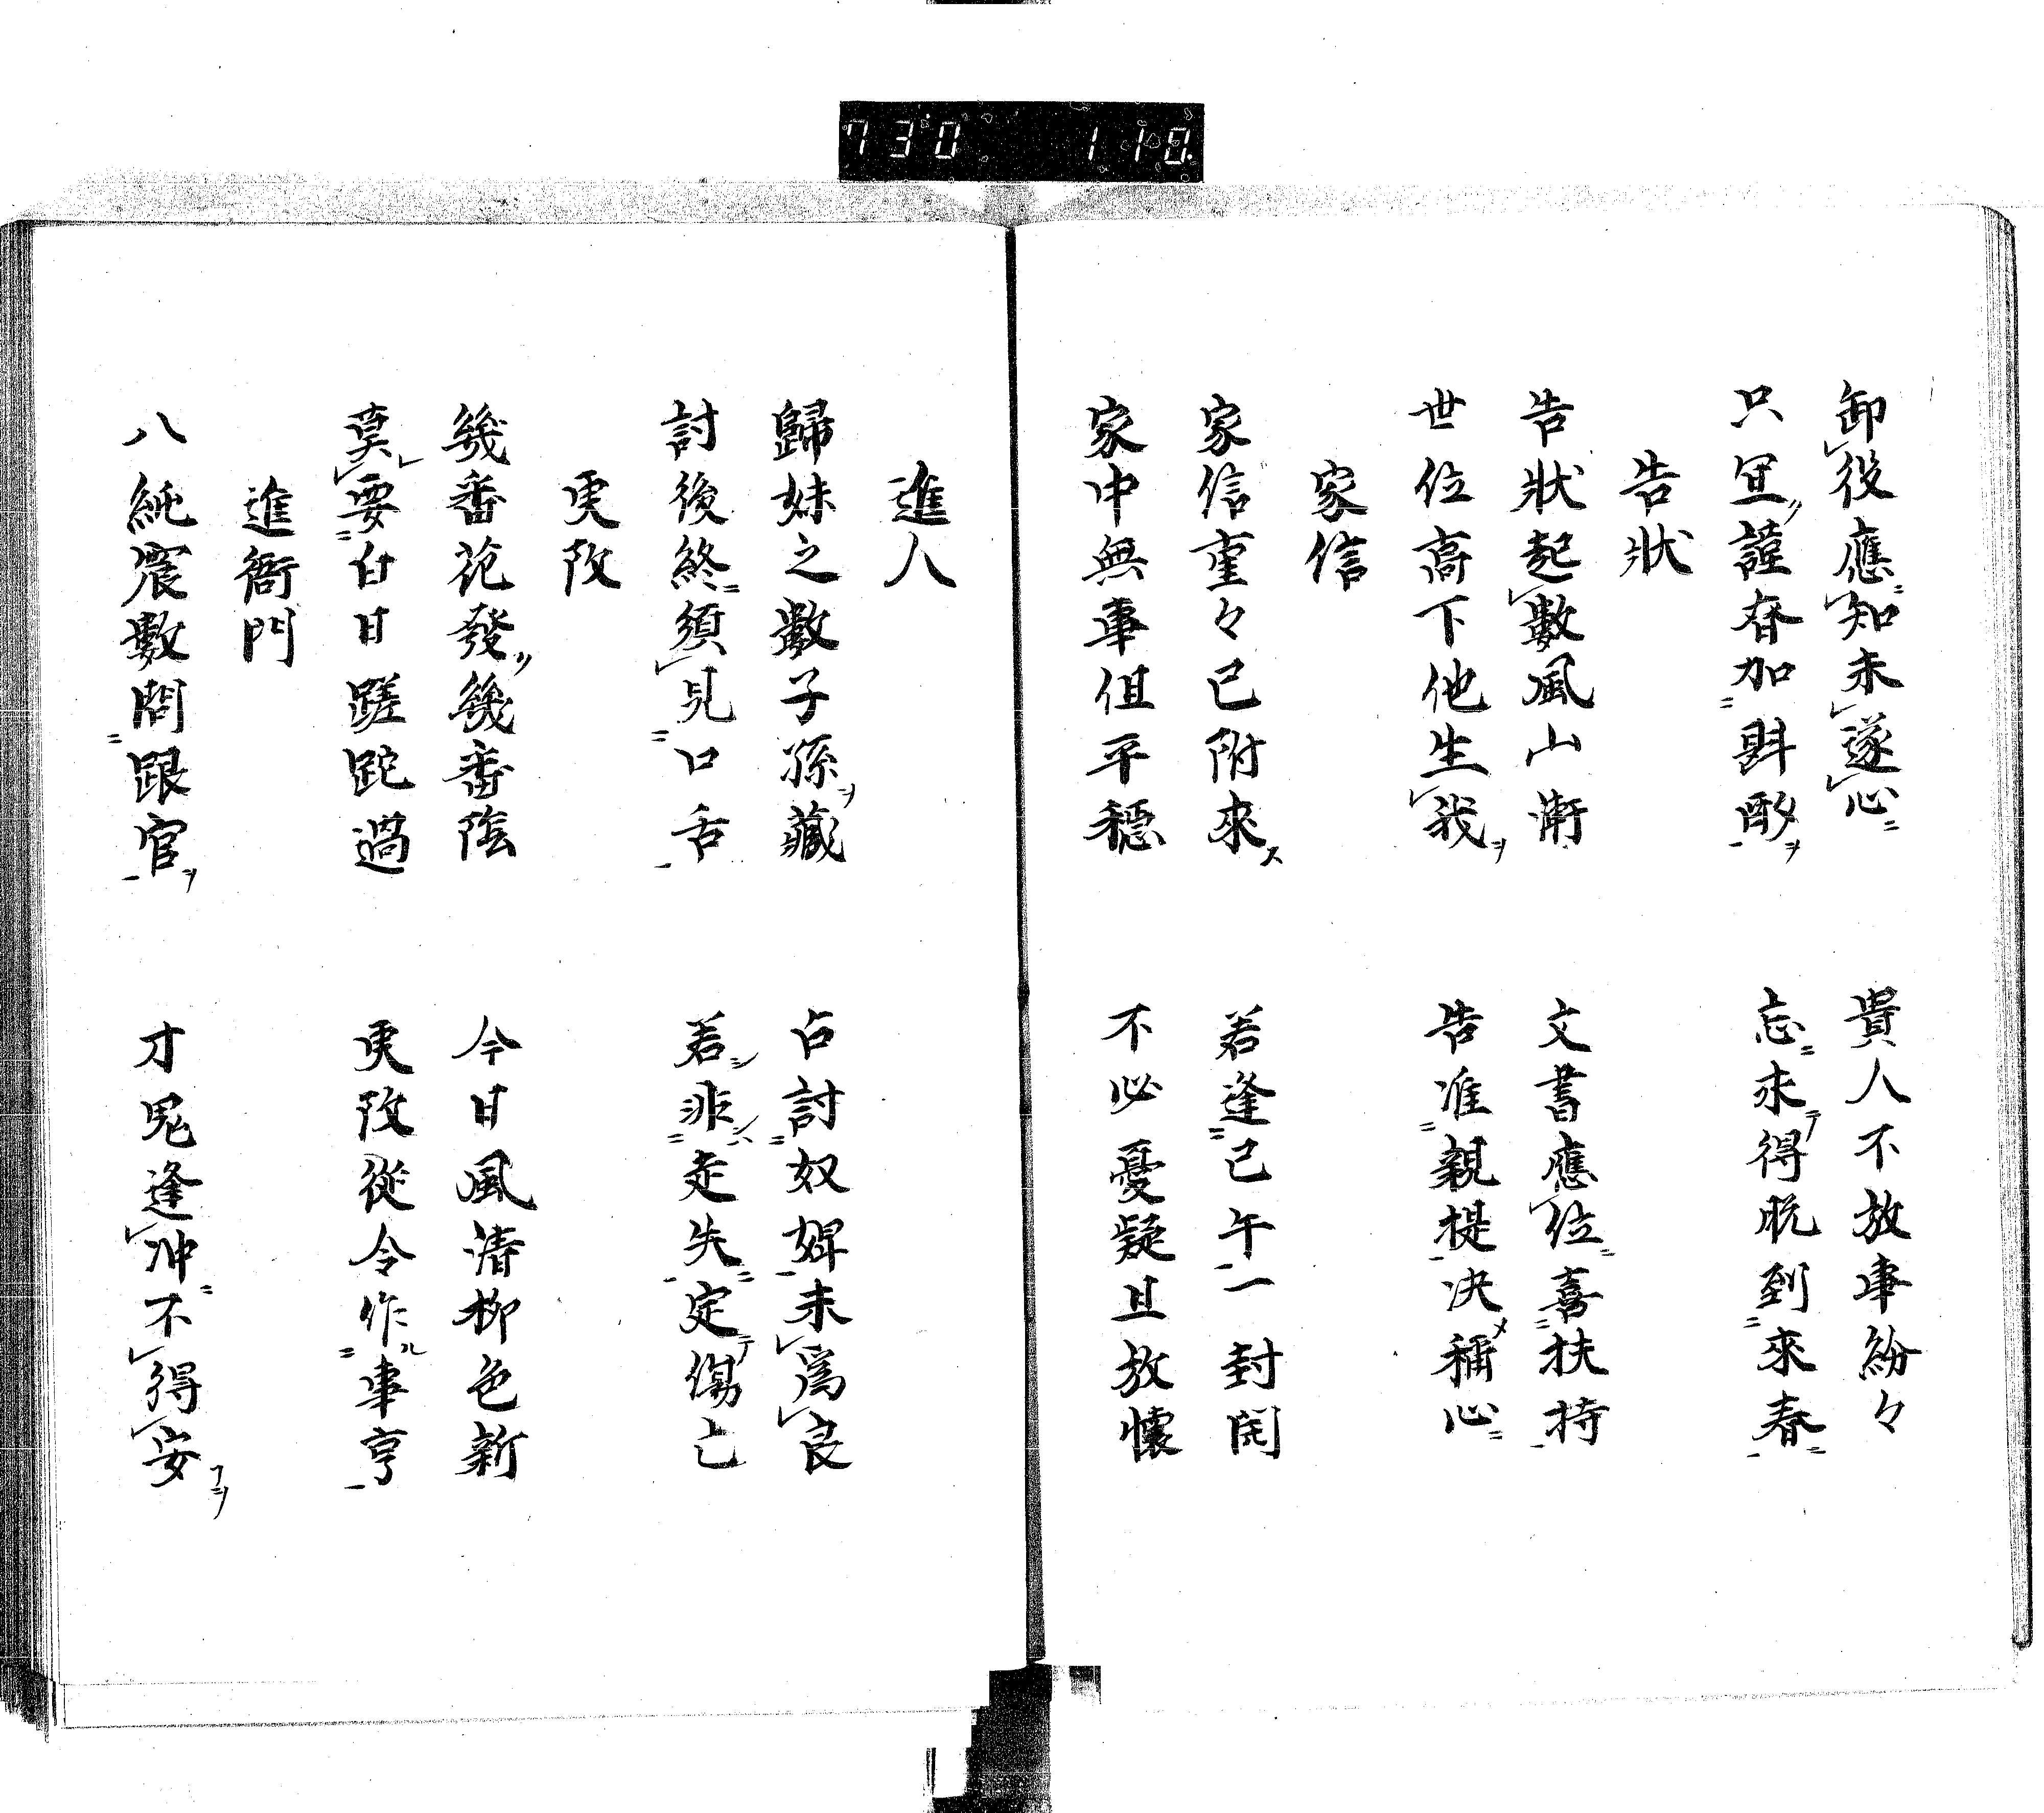 730 110
卸役應知未遂心 貴人不放事紛々
只宜謹奋加斟酌 忘求得脱到來春
告狀
告狀起數風山漸 文書應位喜扶持
世位高下他生我 告准親提决稱心
家信
家信重々已附來 若逢己午一封開
家中無事但平穩 不必憂疑且放懷
進人
歸妹之數子孫藏 占討奴婢未爲良
討後終須見口舌 若非走失定傷亡
更改
幾番花發幾番陰 今日風清柳色新
莫要白日蹉跎過 更改從今作事亨
進衙門
八純震數問跟官 才鬼逢冲不得安